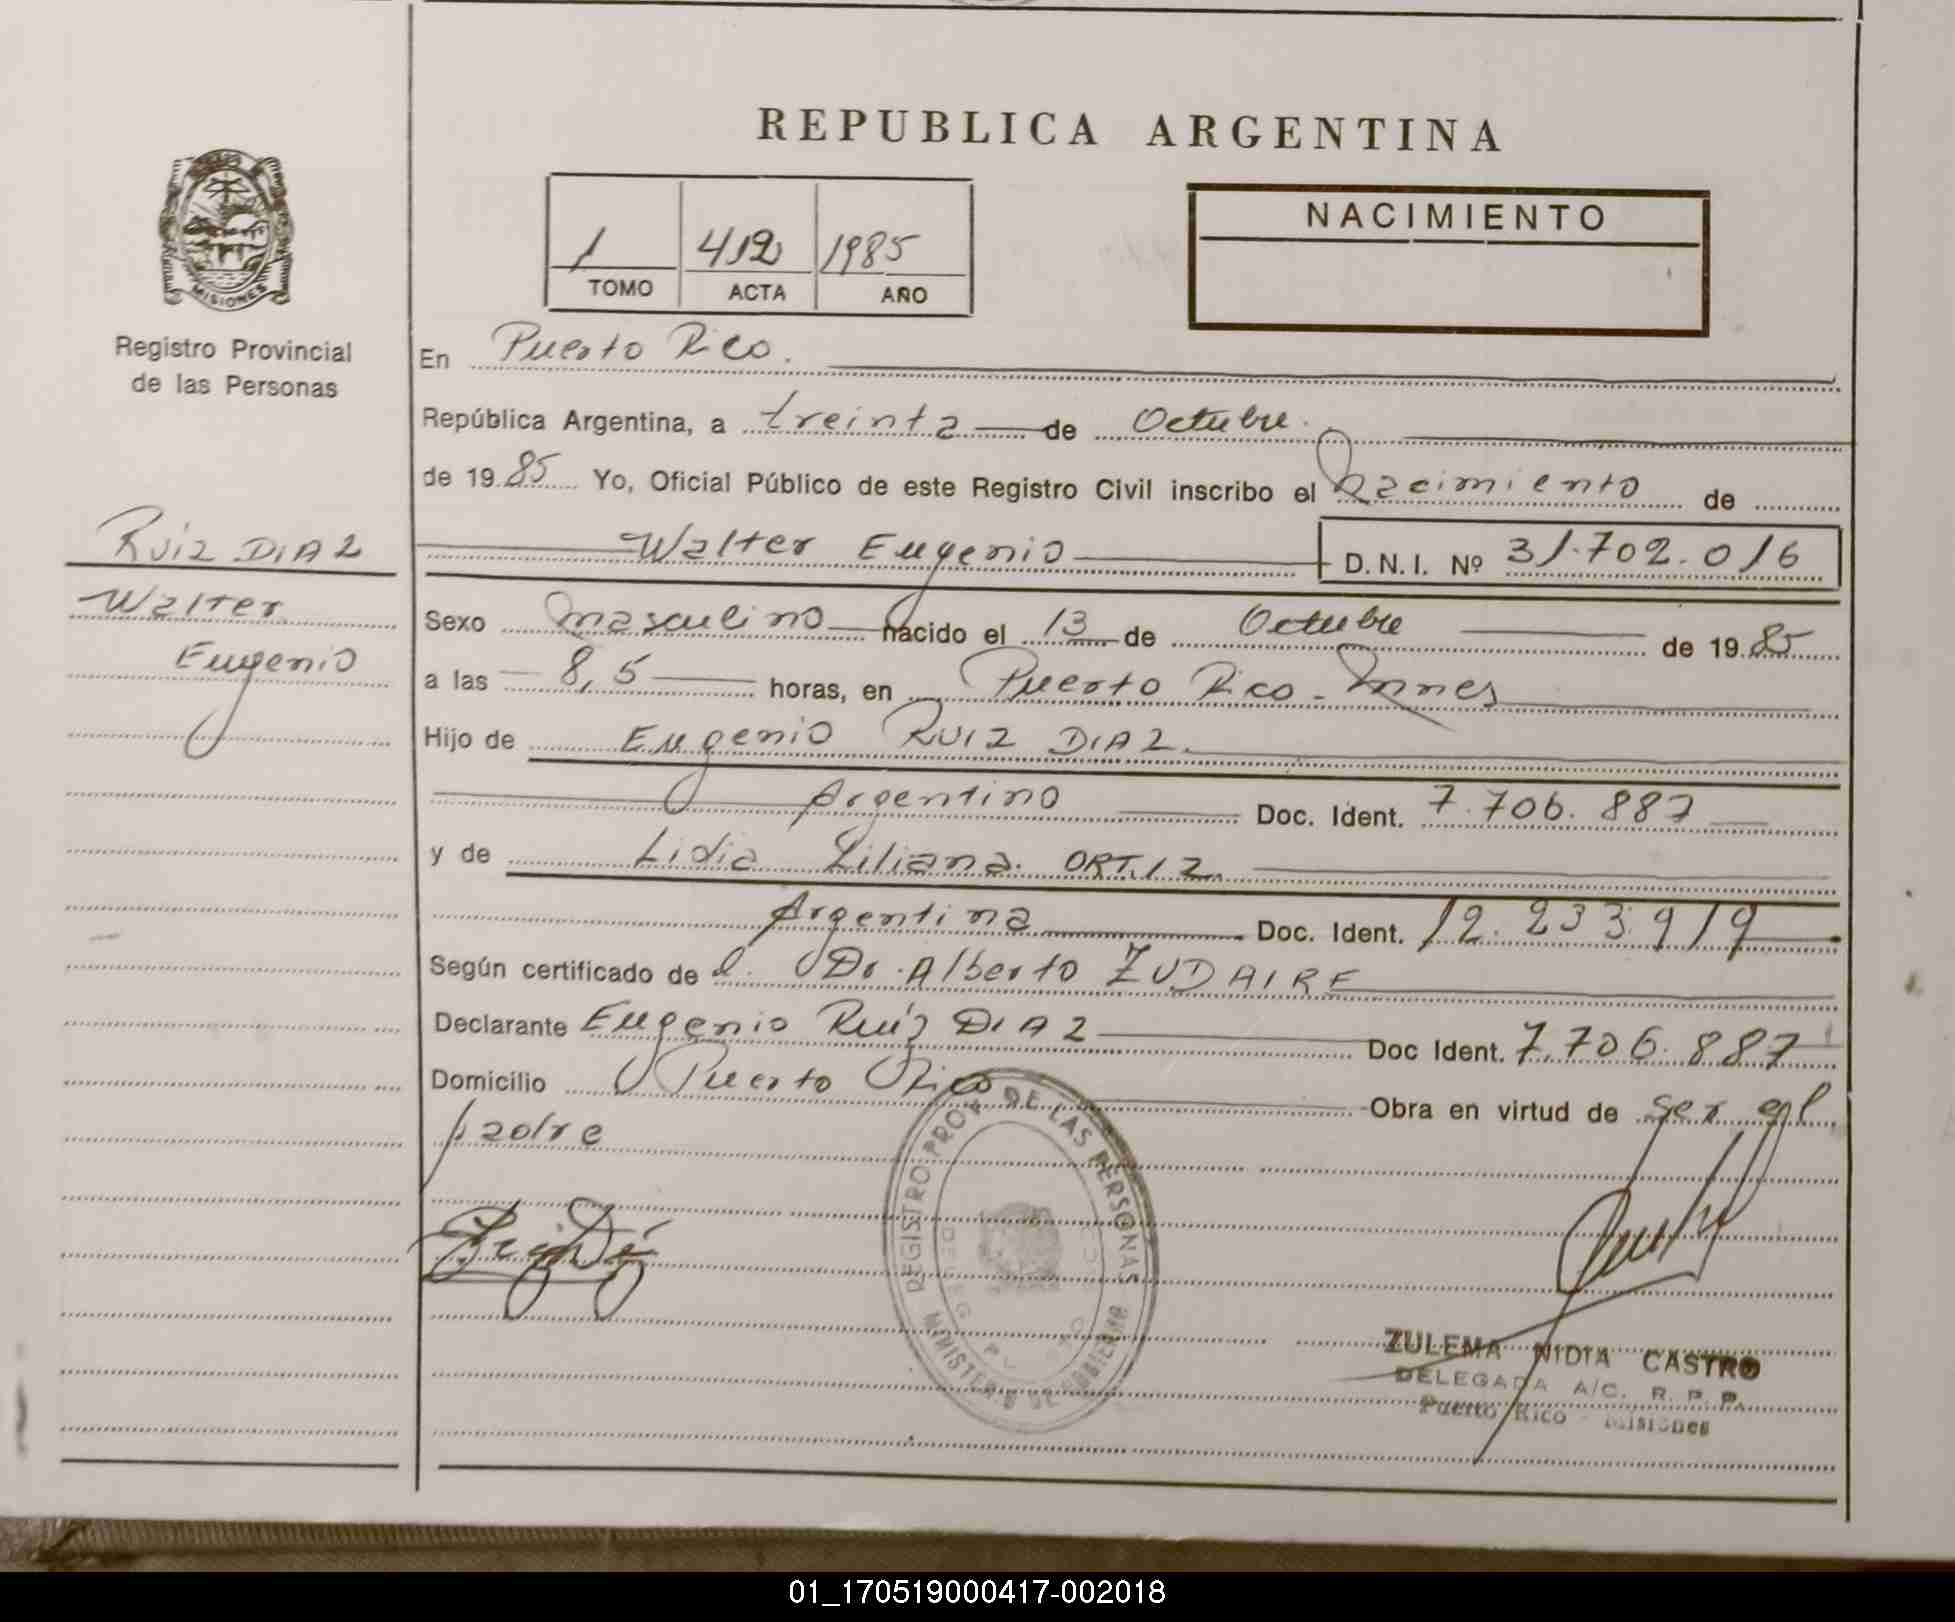 REPUBLICA ARGENTINA
NACIMIENTO
1 412 1985
TOMO ACTA AÑO
MISIONES
Registro Provincial
de las Personas
RUIZ DIAZ
Walter
Eugenio
En Puerto Rico.
República Argentina, a treinta de Octubre.
de 19 85 Yo, Oficial Público de este Registro Civil inscribo el Nacimiento de
Walter Eugenio D.N.I. Nº 31.702.016
Sexo masculino nacido el 13 de Octubre de 19 85
a las 8,5 horas, en Puerto Rico - Mnes
Hijo de Eugenio RUIZ DIAZ.
Argentino Doc. Ident. 7.706.887
y de Lidia Liliana ORTIZ.
Argentina Doc. Ident. 12.233.919
Según certificado de l. Dr. Alberto ZUDAIRE
Declarante Eugenio Ruíz DIAZ Doc Ident. 7.706.887
Domicilio Puerto Rico Obra en virtud de ser el
padre
REGISTRO PROV. DE LAS PERSONAS
MINISTERIO DE GOBIERNO
ZULEMA NIDIA CASTRO
DELEGADA A/C. R. P. P.
Puerto Rico - Misiones
01_170519000417-002018